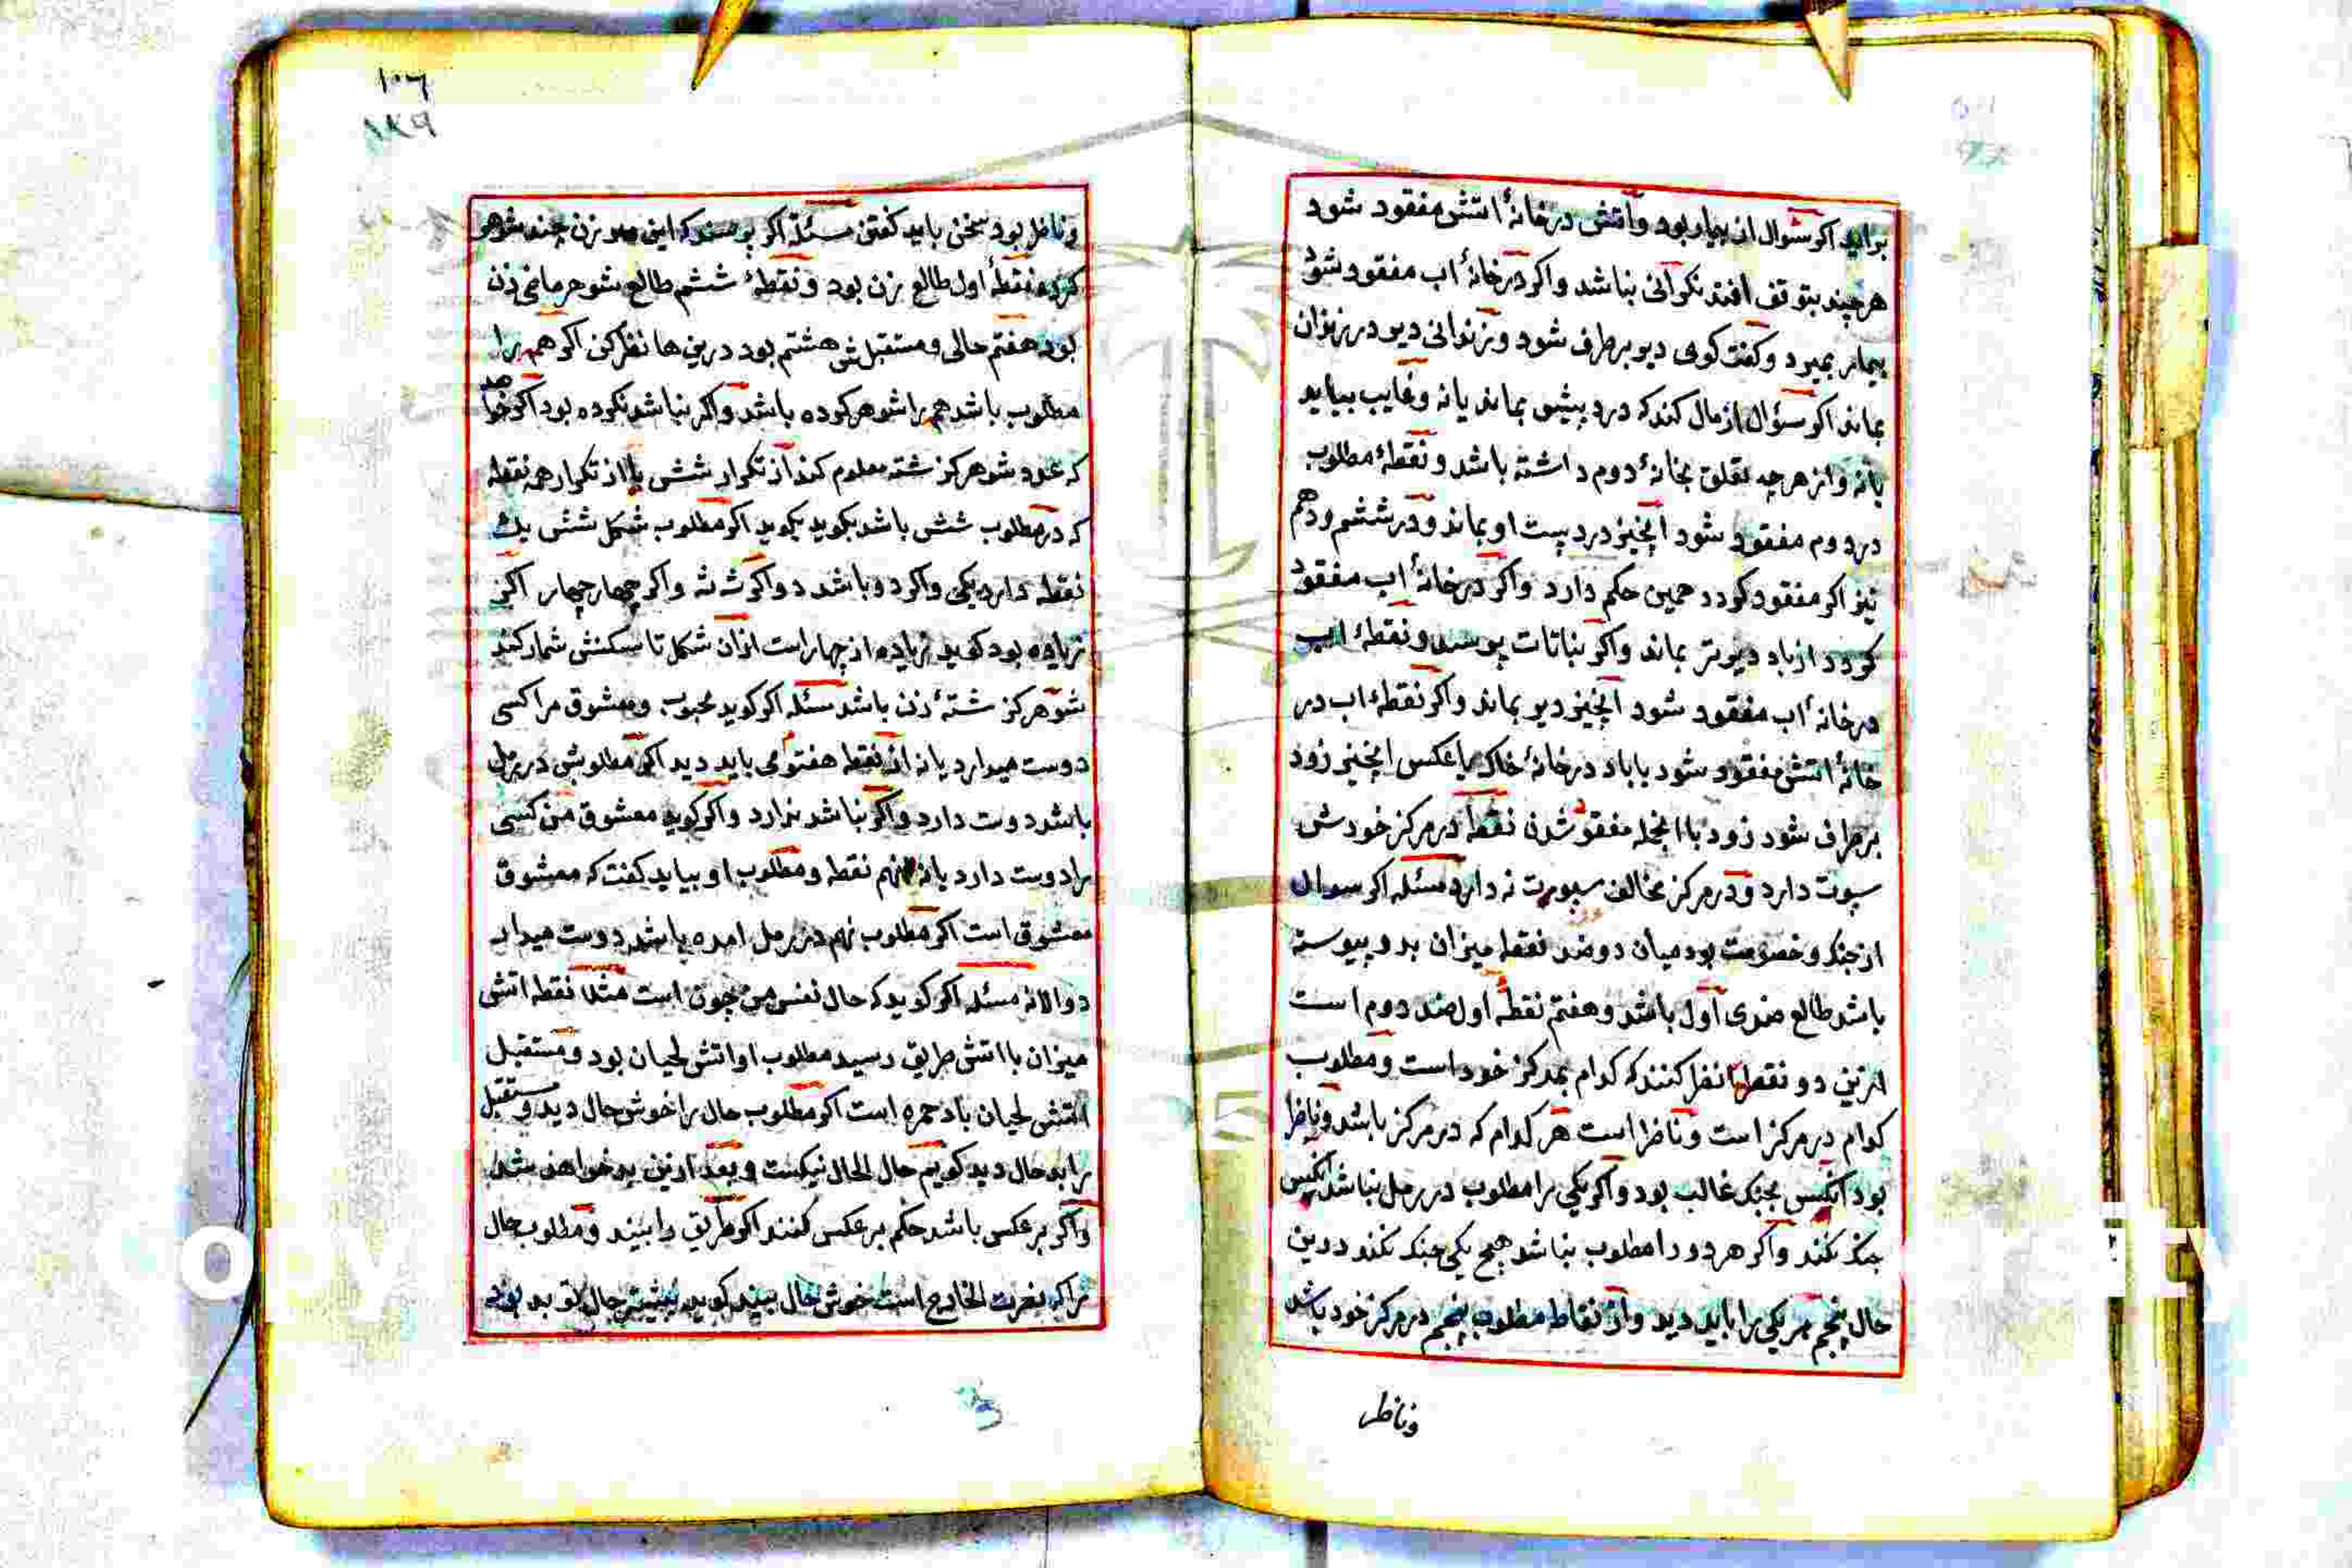 براید اکر سٔوال از بیمار بود واتش درخانهٔ اتش مفقود شود
هرچند بتوقف افتد نکرانی نباشد واکر درخانهٔ اب مفقود شود
بیمار بمیرد وکفت کوی دیو برطرف شود وزندانی دیر در زندان
بماند اکر سؤال از مال کند که در دپیش بماند یانه وغایب بیاید
یانه واز هرچه تعلق بخانهٔ دوم داشته باشد ونقطهٔ مطلوب
در دوم مفقود شود انچیز در دست او بماند ودر ششم ودهم
نیز اکر مفقود کردد همین حکم دارد واکر درخانهٔ اب مفقود
کردد از باد دیرتر بماند واکر نباتات پرسد ونقطهٔ اب
درخانهٔ اب مفقود شود انچیز دیر بماند واکر نقطهٔ اب در
خانهٔ اتش مفقود شود یاباد درخانهٔ خاک یاعکس انچیز زود
برطرف شود زود باانجمله مفقود شدن نقطه درمرکز خودش
سپوت دارد ودر مرکز مخالف سپورت نه دارد مسئله اکر سوال
از جنک وخصومت بود میان دو ضد نقطه میزان بد وپیوسته
باشد طالع ضدی اول باشد وهفتم نقطهٔ اول ضد دوم است
ازین دو نقطها نظر کنند که کدام بمرکز خود است ومطلوب
کدام درمرکز است وناظر است هر کدام که درمرکز باشد وناظر
بود انکس بجنک غالب بود واکر یکی را مطلوب در رمل نباشد انکس
جنک نکند واکر هردو را مطلوب نباشد هیچ یکی جنک نکند درین
حال پنجم هریکی را باید دید واز نقاط مطلوب پنجم درمرکز خود باشد
وناظر
١٠٦
١٨٩
وناظر بود سخنی باید کفتن مسئله اکر پرسند که این زن چند شوهر
کرده نقطهٔ اول طالع زن بود ونقطهٔ ششم طالع شوهر ماضی زن
بود هفتم حالی ومستقبلش هشتم بود درین ها نظر کن اکر همه را
مطلوب باشد همه را شوهر کرده باشد واکر نباشد نکرده بود اکر خواهد
که عدد شوهر کزشته معلوم کند از تکرار شش یا از تکرار همه نقطه
که در مطلوب شش باشد بکوید بکوید اکر مطلوب شکل شش یک
نقطه دارد یکی واکر دو باشد دو اکر سه سه واکر چهار چهار اکر
زیاده بود کوید زیاده از چهار است ازان شکل تا سکنش شمار کند
شوهر کزشتهٔ زن باشد مسئله اکر کوید محبوب ومعشوق مرا کسی
دوست میدارد یانه از نقطه هفتوی باید دید اکر مطلوبش در رمل
باشد دوست دارد واکر نباشد ندارد واکر کوید معشوق من کسی
را دوست دارد یانه نهم نقطه ومطلوب او بیاید کفت که معشوق
معشوق است اکر مطلوب نهم در رمل امده باشد دوست میدارد
دوالانه مسئله اکر کوید که حال نفس من چون است مثلا نقطه اتش
میزان بااتش طریق رسید مطلوب او اتش لحیان بود ومستقبل
اتش لحیان باد حمره است اکر مطلوب حال را خوش حال دید ومستقبل
را بد حال دید کویم حال الحال نیکست وبعد ازین بد خواهد شد
واکر برعکس باشد حکم برعکس کنند اکر طریق را بیند ومطلوب حال
را که نصرت الخارج است خوش حال بیند کوید پیشتر حال تو بد بود